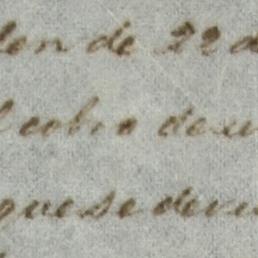 den de 22 d
l cobro de su
que se deven